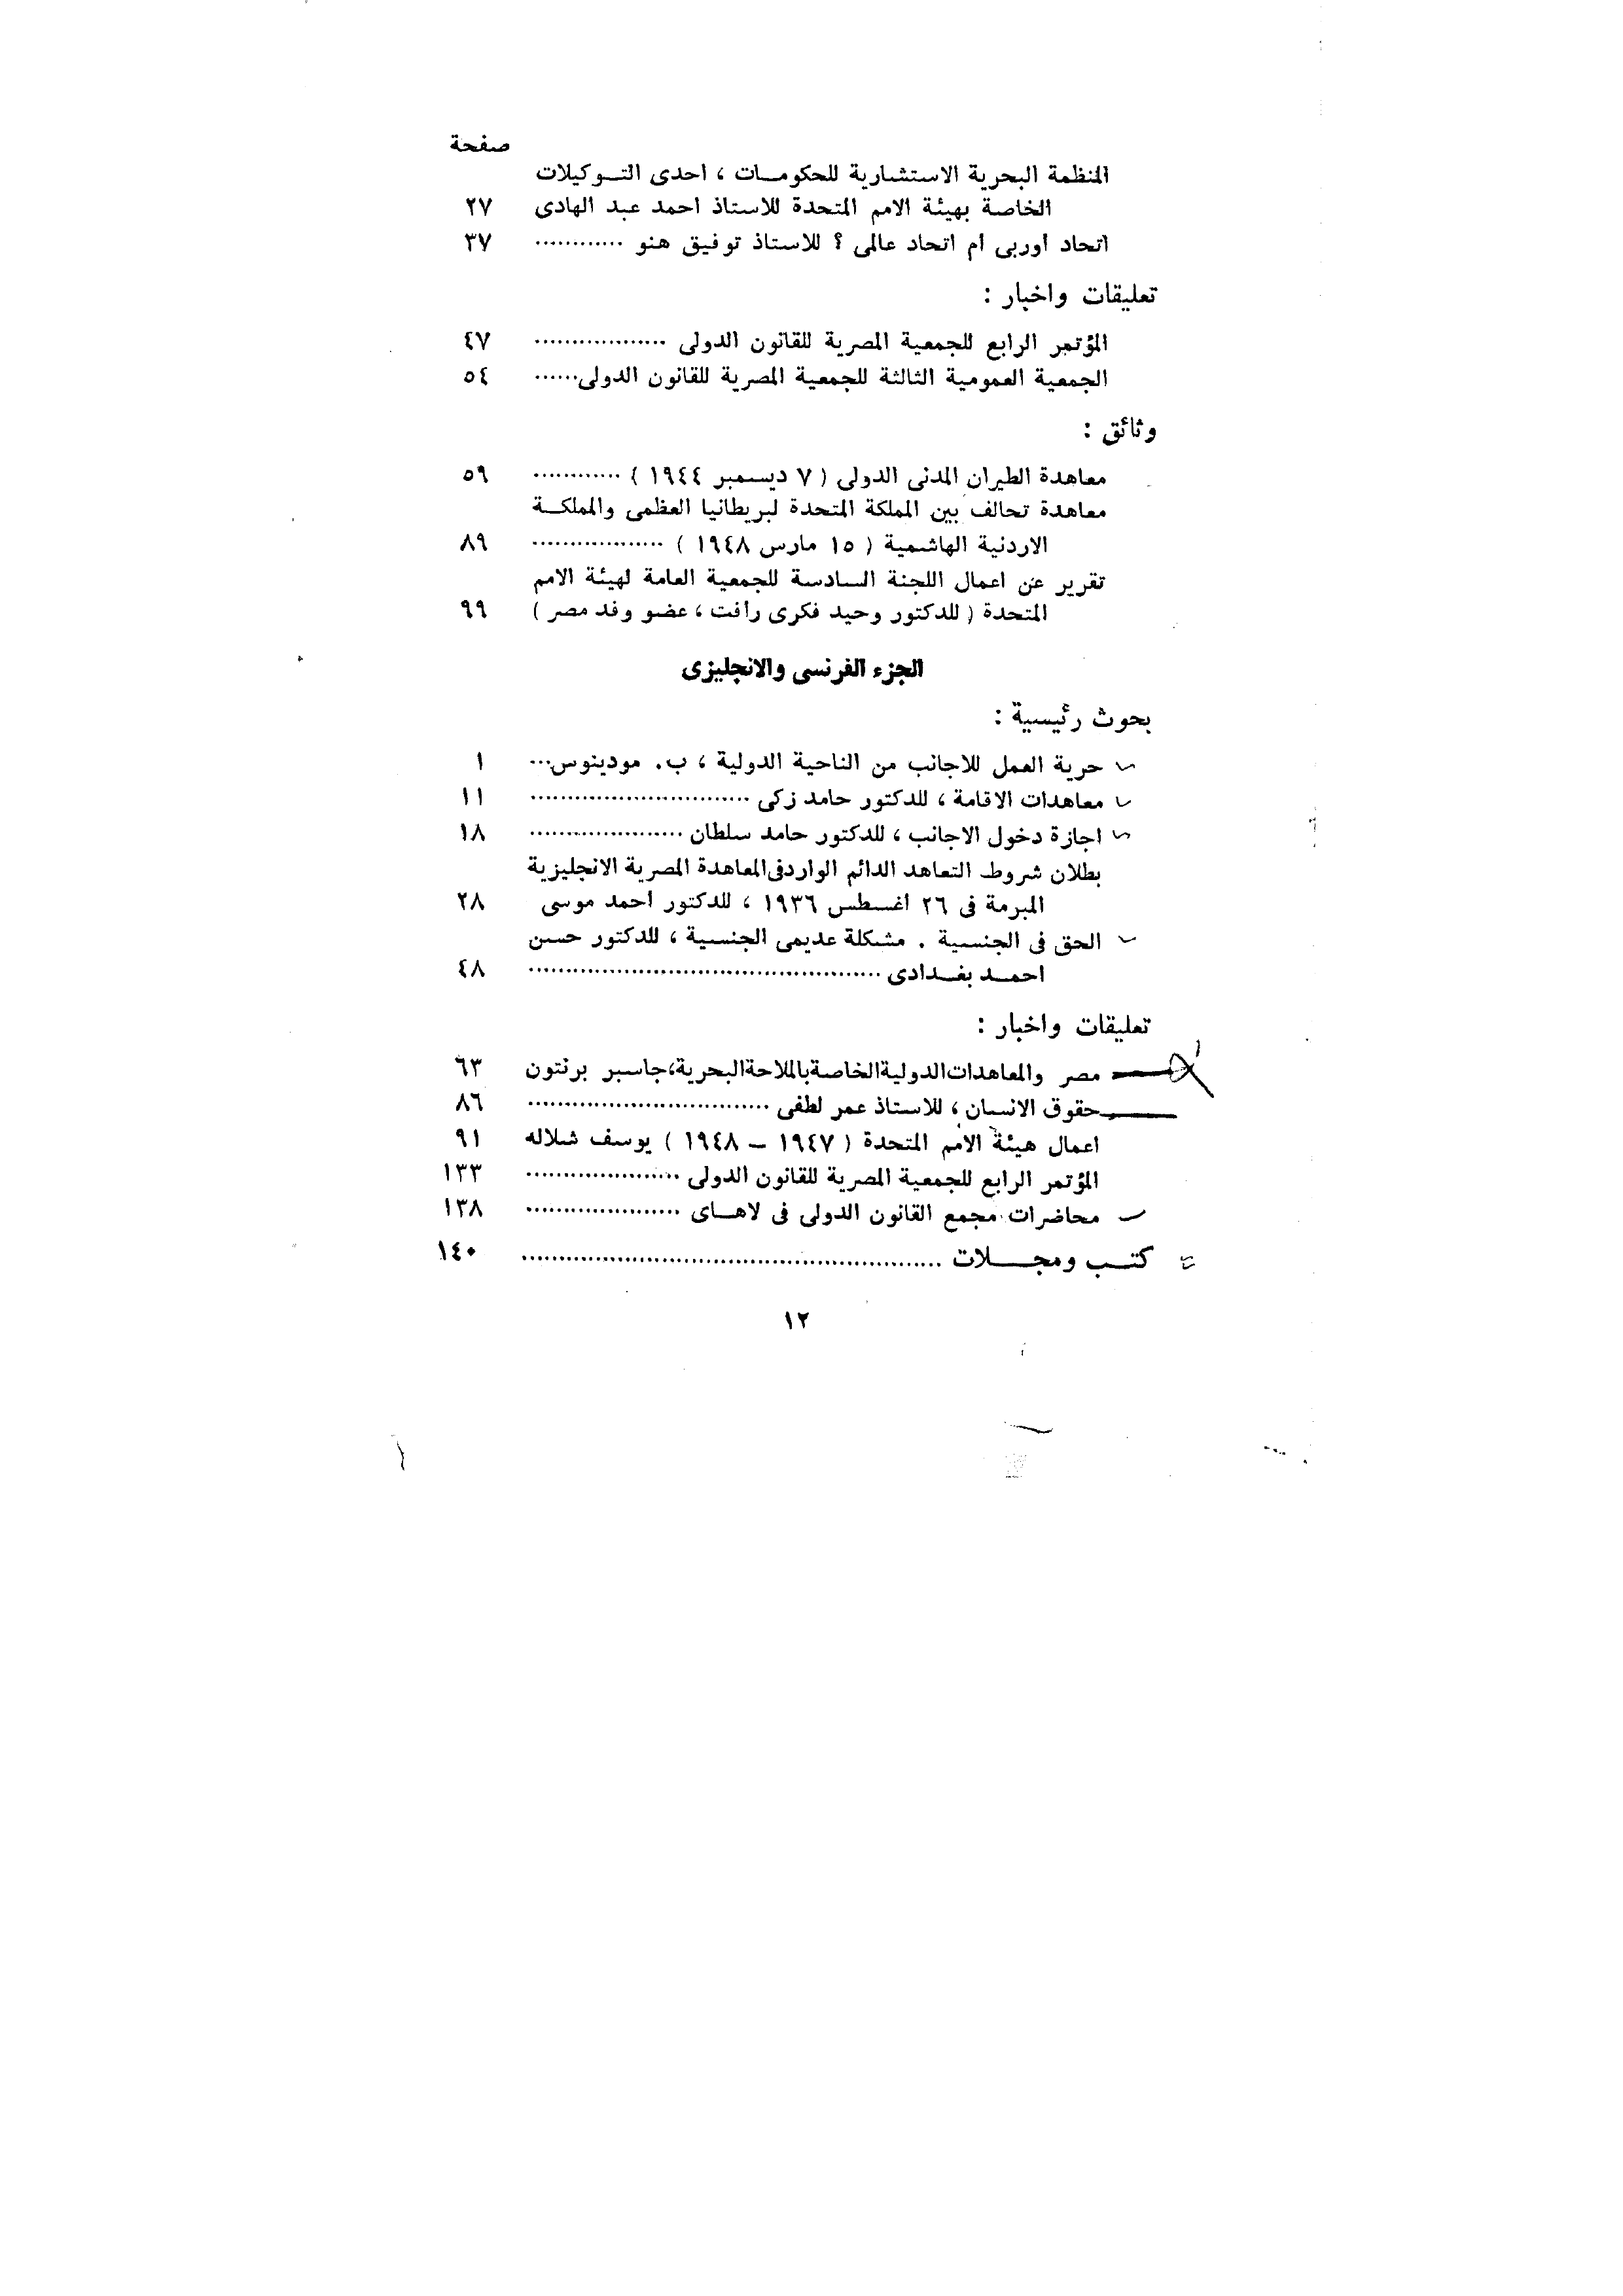 صفحة
المنظمة البحرية الاستشارية للحكومـات ، احدى التـوكيلات
الخاصة بهيئة الامم المتحدة للاستاذ احمد عبد الهادى ٢٧
اتحاد اوربى ام اتحاد عالمى ؟ للاستاذ توفيق هنو ............ ٣٧
تعليقات واخبار :
المؤتمر الرابع للجمعية المصرية للقانون الدولى .................. ٤٧
الجمعية العمومية الثالثة للجمعية المصرية للقانون الدولى...... ٥٤
وثائق :
معاهدة الطيران المدنى الدولى ( ٧ ديسمبر ١٩٤٤ ) ............ ٥٩
معاهدة تحالف بين المملكة المتحدة لبريطانيا العظمى والمملكـة
الاردنية الهاشمية ( ١٥ مارس ١٩٤٨ ) .................. ٨٩
تقرير عن اعمال اللجنة السادسة للجمعية العامة لهيئة الامم
المتحدة ( للدكتور وحيد فكرى رافت ، عضو وفد مصر ) ٩٩
الجزء الفرنسى والانجليزى
بحوث رئيسية :
حرية العمل للاجانب من الناحية الدولية ، ب. مودينوس... ١
معاهدات الاقامة ، للدكتور حامد زكى .............................. ١١
اجازة دخول الاجانب ، للدكتور حامد سلطان ..................... ١٨
بطلان شروط التعاهد الدائم الواردفى المعاهدة المصرية الانجليزية
المبرمة فى ٢٦ اغسطس ١٩٣٦ ، للدكتور احمد موسى ٢٨
الحق فى الجنسية . مشكلة عديمى الجنسية ، للدكتور حسن
احمـد بغـدادى ................................................ ٤٨
تعليقات واخبار :
مصر والمعاهدات الدولية الخاصة بالملاحة البحرية، جاسبر برنتون ٦٣
حقوق الانسان ، للاستاذ عمر لطفى ................................. ٨٦
اعمال هيئة الأمم المتحدة ( ١٩٤٧ – ١٩٤٨ ) يوسف شلاله ٩١
المؤتمر الرابع للجمعية المصرية للقانون الدولى ..................... ١٣٣
محاضرات مجمع القانون الدولى فى لاهـاى ..................... ١٣٨
كتـب ومجـــلات ......................................................... ١٤٠
١٢